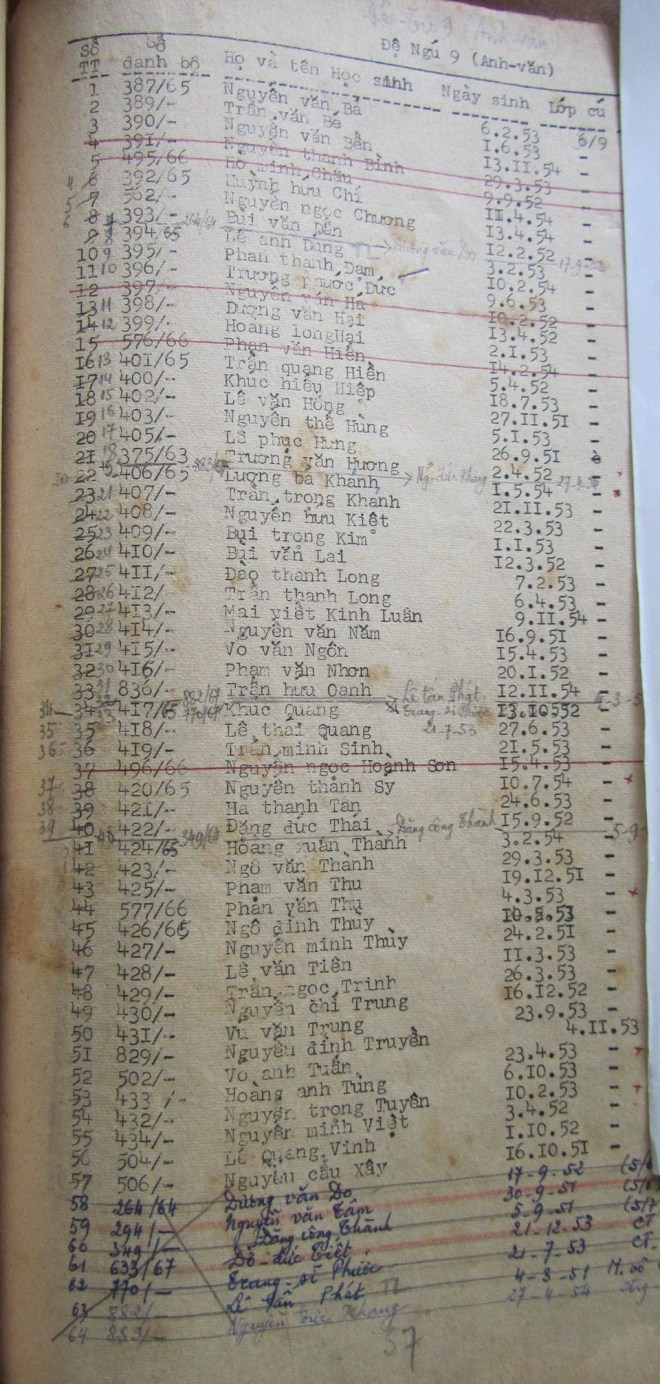 Đệ Ngũ 9 (Anh-văn)
Số TT Số danh bộ Họ và tên Học sinh Ngày sinh Lớp cũ
1 387/65 Nguyễn văn Bá 6.2.53 6/9
2 389/- Trần văn Bé I.6.53 -
3 390/- Nguyễn văn Bền I3.II.54 -
4 39I/- Nguyễn thanh Bình 29.3.53 -
5 495/66 Hồ minh Châu 9.9.52 -
6 392/65 Huỳnh hữu Chí II.4.54 -
7 562/- Nguyễn ngọc Chương I3.4.54 -
8 393/- Bùi văn Dần I2.2.52 -
9 394/65 Lê anh Dũng 3.2.53 -
10 395/- Phan thanh Đạm I0.2.54 -
11 396/- Trương phước Đức 9.6.53 -
12 397/- Nguyễn văn Hà I0.2.52 -
13 398/- Dương văn Hai I3.4.52 -
14 399/- Hoàng longHai 2.I.53 -
15 576/66 Phan văn Hiền I4.2.54 -
16 40I/65 Trần quang Hiền 5.4.52 -
17 400/- Khúc hiếu Hiệp I8.7.53 -
18 402/- Lê văn Hồng 27.II.5I -
19 403/- Nguyễn thế Hùng 5.I.53 -
20 405/- Lê phục Hưng 26.9.5I
21 375/63 Trương văn Hương 2.4.52 -
22 406/65 Lương bá Khanh I.5.54 -
23 407/- Trần trọng Khanh 2I.II.53 -
24 408/- Nguyễn hữu Kiệt 22.3.53 -
25 409/- Bùi trọng Kim I.I.53 -
26 4I0/- Bùi văn Lai I2.3.52 -
27 4II/- Đào thanh Long 7.2.53 -
28 4I2/ Trần thanh Long 6.4.53 -
29 4I3/- Mai viết Kinh Luân 9.II.54 -
30 4I4/- Nguyễn văn Năm I6.9.5I -
31 4I5/- Võ văn Ngôn I5.4.53 -
32 4I6/- Phạm văn Nhơn 20.I.52 -
33 836/- Trần hưu Oanh Lê tấn Phát I2.II.54 -
34 4I7/65 Khúc Quang Trang sĩ Phước I3.I0.52
35 4I8/- Lê thái Quang 21-7-53 27.6.53 -
36 4I9/- Trần minh Sinh 2I.5.53 -
37 496/66 Nguyễn ngọc Hoành Sơn I5.4.53 -
38 420/65 Nguyễn thành Sy I0.7.54 -
39 42I/- Hà thanh Tân 24.6.53 -
40 422/- Đặng đức Thái Đăng công Thành I5.9.52 -
41 424/65 Hoàng xuân Thành 3.2.54
42 423/- Ngô văn Thành 29.3.53 -
43 425/- Phạm văn Thu I9.I2.5I -
44 577/66 Phan văn Thu 4.3.53 -
45 426/65 Ngô đình Thùy
46 427/- Nguyễn minh Thùy 24.2.5I -
47 428/- Lê văn Tiên II.3.53 -
48 429/- Trần ngọc Trinh 26.3.53 -
49 430/- Nguyễn chí Trung I6.I2.52 -
50 43I/- Vũ văn Trung 23.9.53 -
51 829/- Nguyễn đình Truyền 4.II.53
52 502/- Võ anh Tuấn 23.4.53 -
53 433 /- Hoàng anh Tùng 6.I0.53 -
54 432/- Nguyễn trọng Tuyên I0.2.53 -
55 434/- Nguyễn minh Việt 3.4.52 -
56 504/- Lê Quang Vinh I.I0.52 -
57 506/- Nguyễn cầu Xây I6.I0.5I -
58 264/64 Dương văn Do 17-9-52
59 294/- Nguyễn văn Tâm 30-9-51
60 349/- Đăng công Thành 5-9-51
61 633/67 Đỗ-đức Tiết 21-12-53
62 770/- Trang-sĩ Phước 21-7-53
63 882/- Lê Tấn Phát 4-3-51
64 883/- Nguyễn đức Khang 27-4-54
57